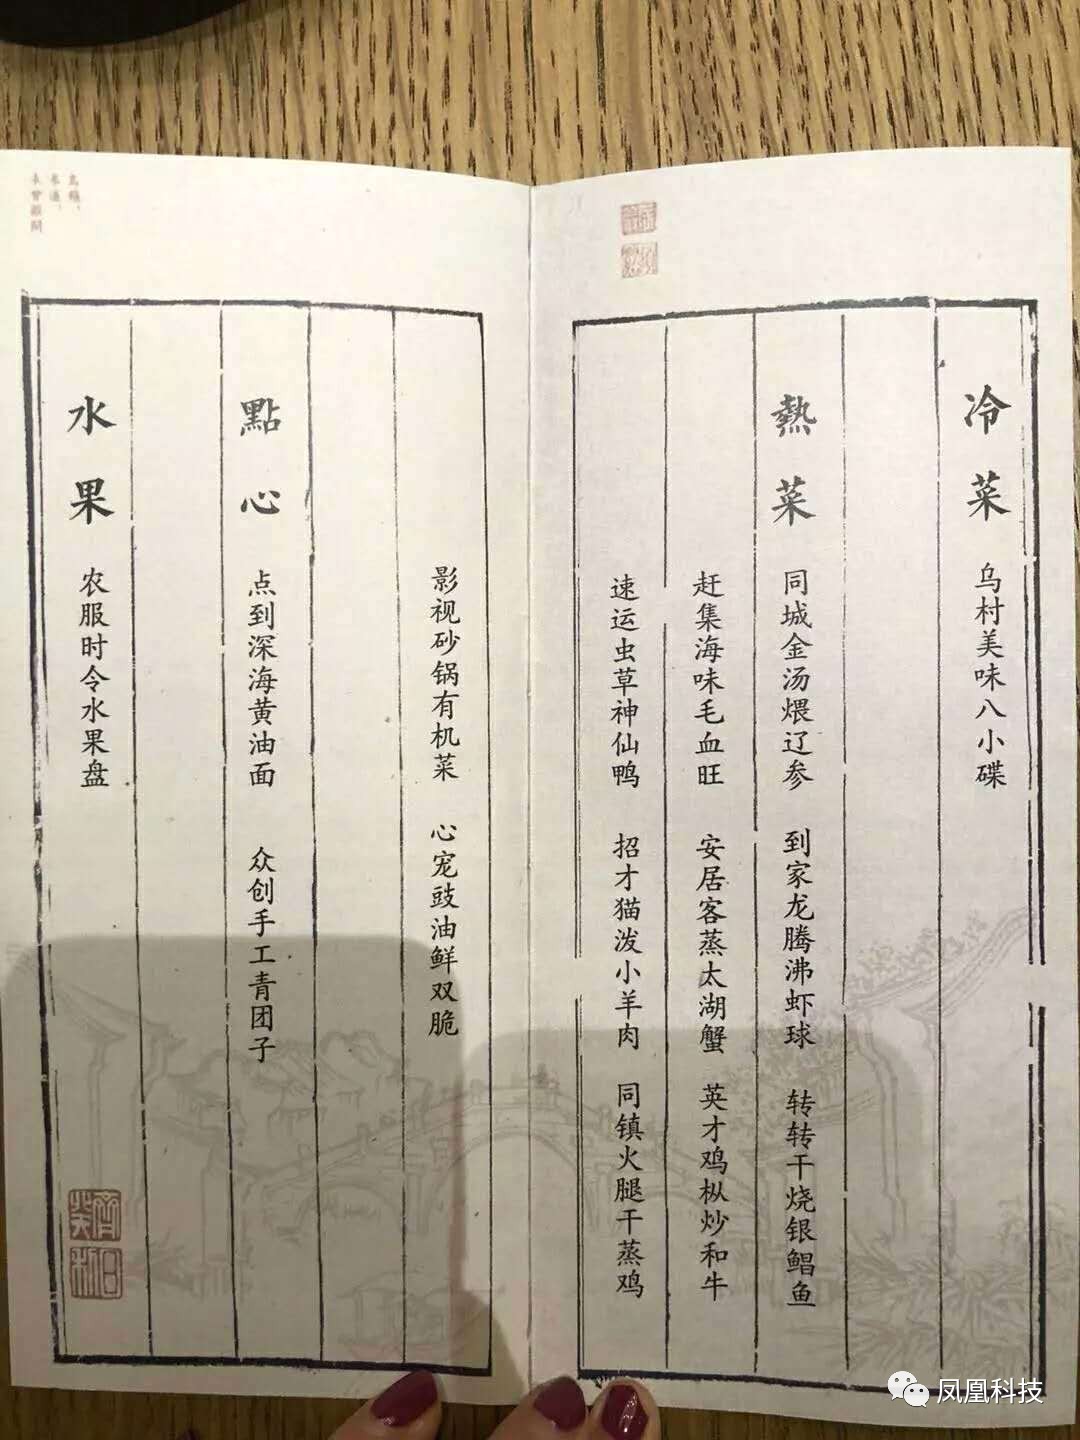 冷菜
乌村美味八小碟
熱菜
同城金汤煨辽参 到家龙腾沸虾球 转转干烧银鲳鱼
赶集海味毛血旺 安居客蒸太湖蟹 英才鸡枞炒和牛
速运虫草神仙鸭 招才猫泼小羊肉 同镇火腿干蒸鸡
影视砂锅有机菜 心宠豉油鲜双脆
點心
点到深海黄油面 众创手工青团子
水果
农服时令水果盘
凤凰科技